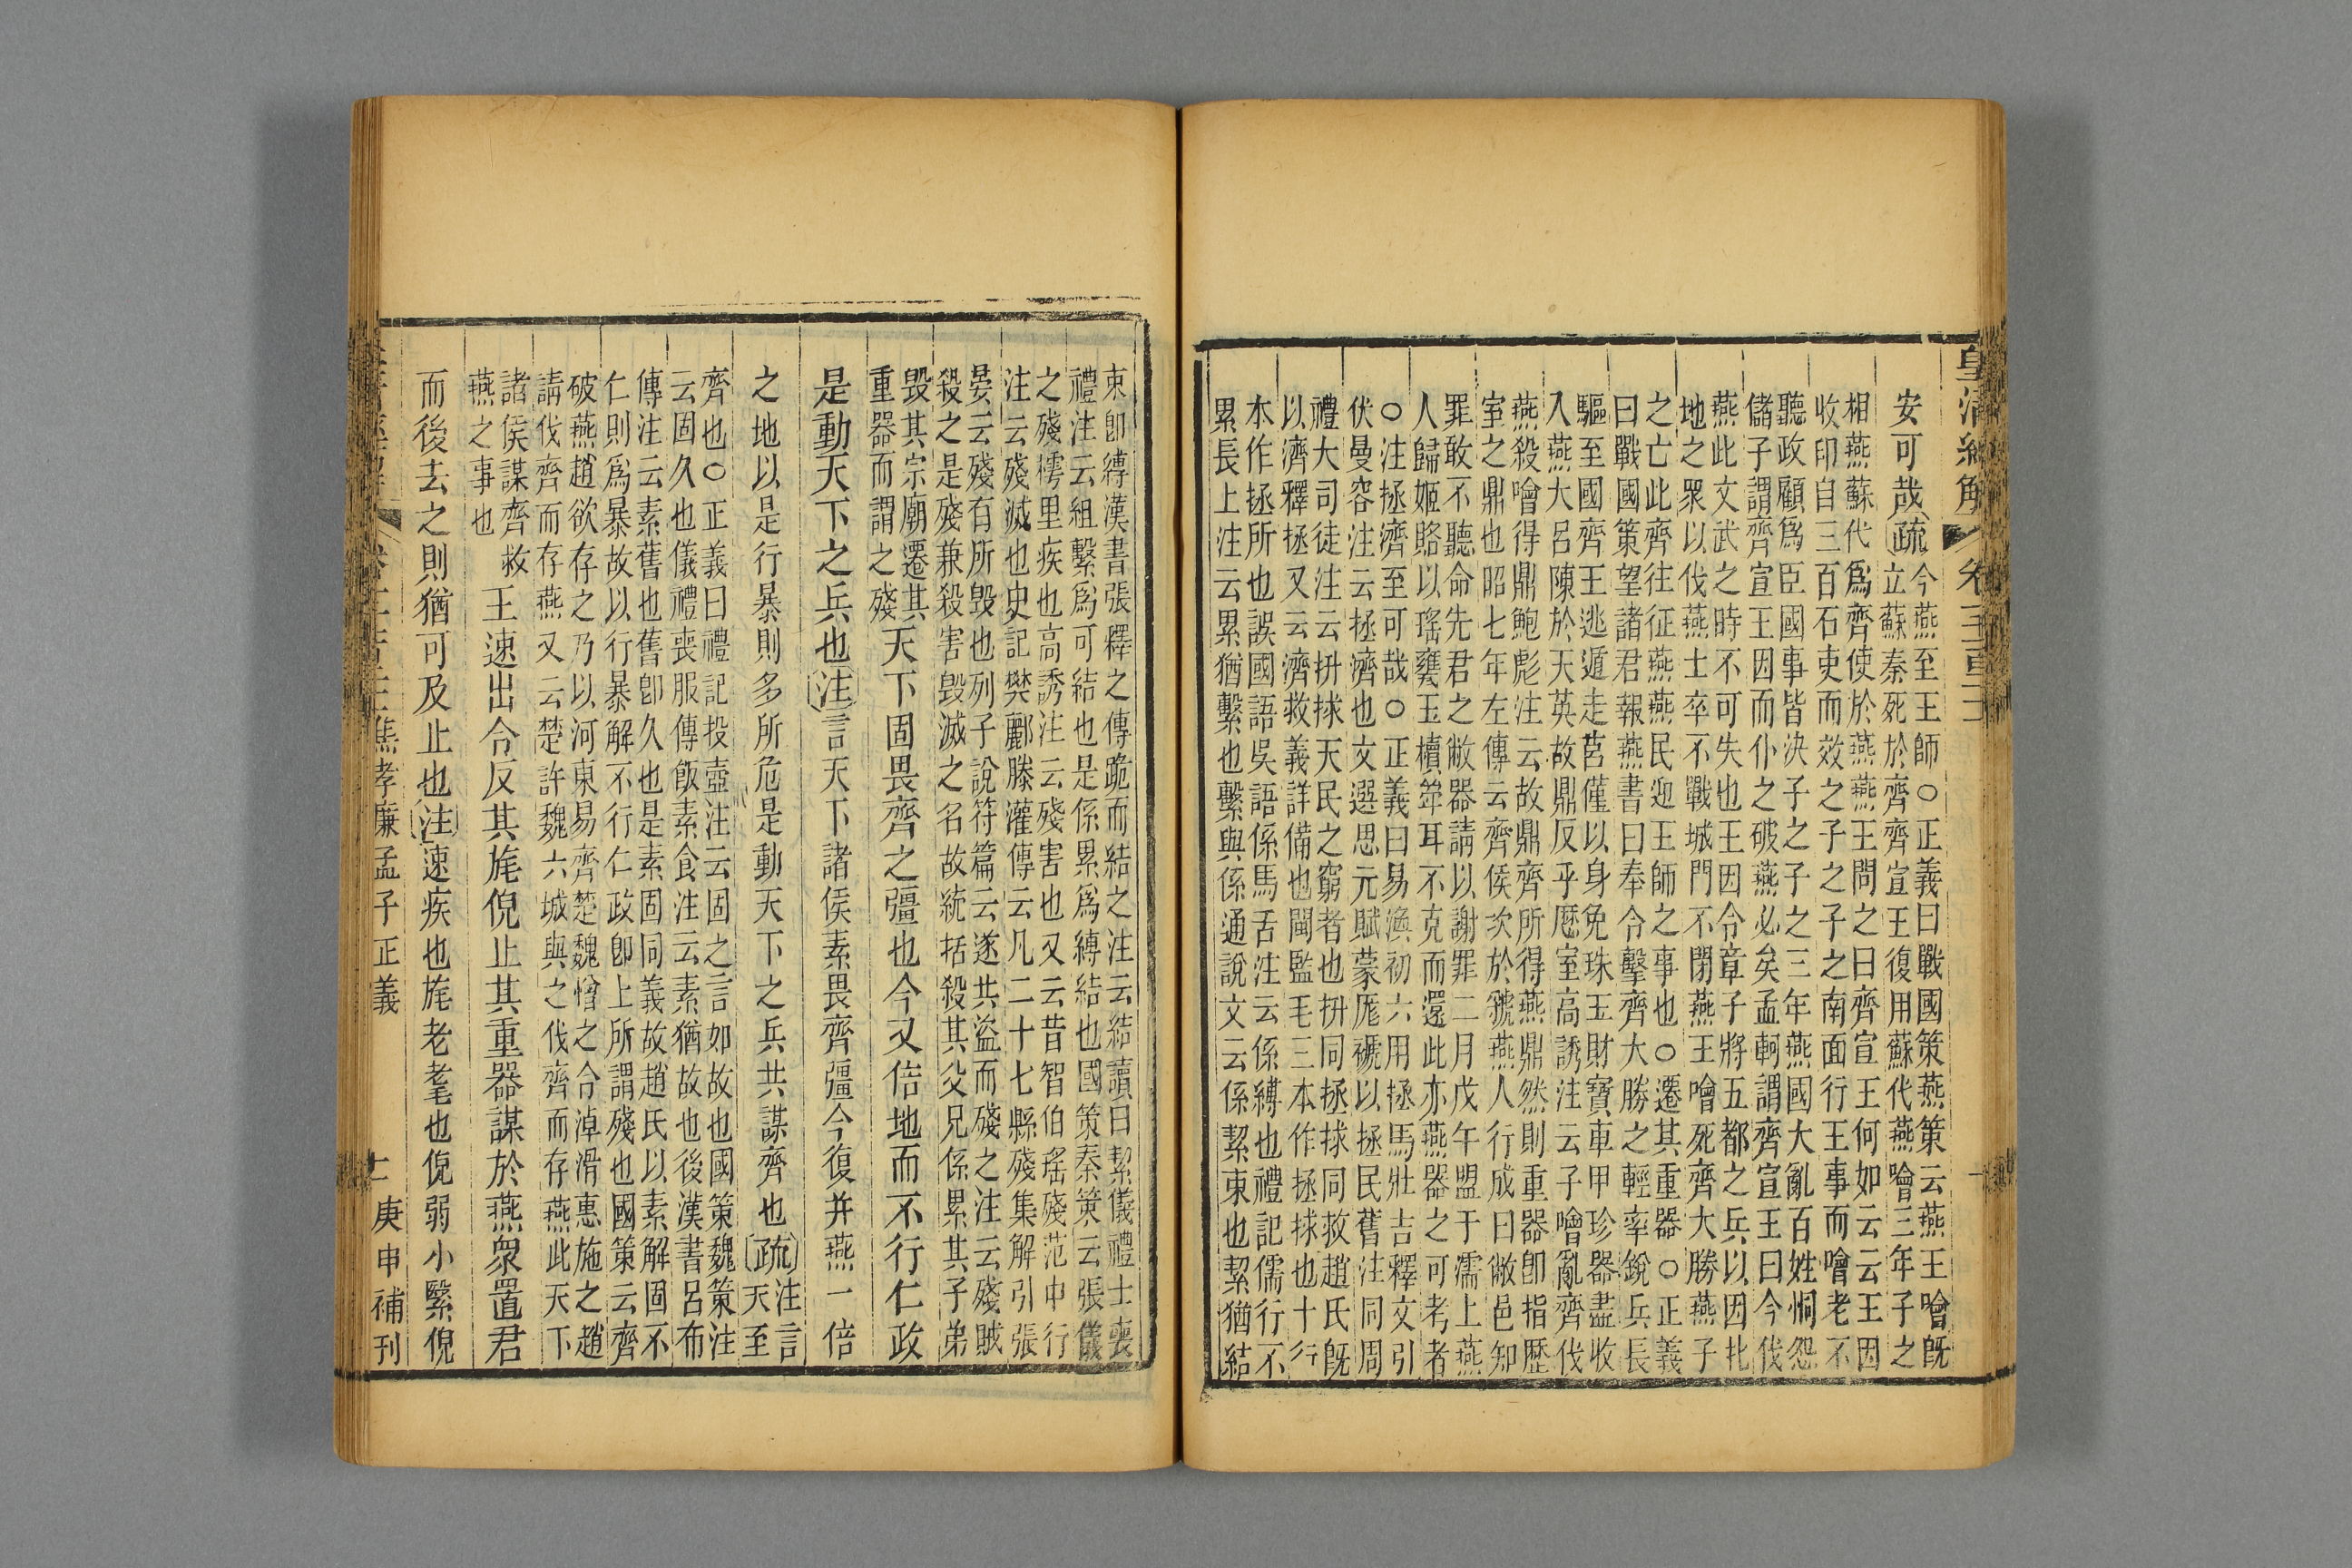 皇清經解 卷
安可哉 疏 今燕至王師○正義曰戰國策燕策云燕王噲旣
立蘇秦死於齊齊宣王復用蘇代燕噲三年子之
相燕蘇代爲齊使於燕燕王問之曰齊宣王何如云云王因
收印自三百石吏而效之子之子之南面行王事而噲老不
聽政顧爲臣國事皆決子之子之三年燕國大亂百姓恫怨
儲子謂齊宣王因而仆之破燕必矣孟軻謂齊宣王曰今伐
燕此文武之時不可失也王因令章子將五都之兵以因北
地之眾以伐燕士卒不戰城門不閉燕王噲死齊大勝燕子
之亡此齊往征燕燕民迎王師之事也○遷其重器○正義
曰戰國策望諸君報燕書曰奉令擊齊大勝之輕率銳兵長
驅至國齊王逃遁走莒僅以身免珠玉財寶車甲珍器盡收
入燕大呂陳於天英故鼎反乎厯室高誘注云子噲亂齊伐
燕殺噲得鼎鮑彪注云故鼎齊所得燕鼎然則重器卽指歷
室之鼎也昭七年左傳云齊侯次於虢燕人行成曰敝邑知
罪敢不聽命先君之敝器請以謝罪二月戊午盟于濡上燕
人歸姬賂以瑤罋玉櫝斝耳不克而還此亦燕器之可考者
○注拯濟至可哉○正義曰易渙初六用拯馬壯吉釋文引
伏曼容注云拯濟也文選思元賦蒙厖褫以拯民舊注同周
禮大司徒注云抍捄天民之窮者也抍同拯捄同救趙氏旣
以濟釋拯又云濟救義詳備也閩監毛三本作拯捄也十行
本作拯所也誤國語吳語係馬舌注云係縛也禮記儒行不
累長上注云累猶繫也繫與係通說文云係絜束也絜猶結
束卽縛漢書張釋之傳跪而結之注云結讀曰絜儀禮士喪
禮注云組繫爲可結也是係累爲縛結也國策秦策云張儀
之殘樗里疾也高誘注云殘害也又云昔智伯瑤殘范中行
注云殘滅也史記樊酈滕灌傳云凡二十七縣殘集解引張
晏云殘有所毀也列子說符篇云遂共盜而殘之注云殘賊
殺之是殘兼殺害毀滅之名故統括殺其父兄係累其子弟
毀其宗廟遷其
重器而謂之殘 天下固畏齊之彊也今又倍地而不行仁政
是動天下之兵也 注 言天下諸侯素畏齊彊今復并燕一倍
之地以是行暴則多所危是動天下之兵共謀齊也 疏 注言
天至
齊也○正義曰禮記投壺注云固之言如故也國策魏策注
云固久也儀禮喪服傳飯素食注云素猶故也後漢書呂布
傳注云素舊也舊卽久也是素固同義故趙氏以素解固不
仁則爲暴故以行暴解不行仁政卽上所謂殘也國策云齊
破燕趙欲存之乃以河東易齊楚魏憎之令淖滑惠施之趙
請伐齊而存燕又云楚許魏六城與之伐齊而存燕此天下
諸侯謀齊救
燕之事也 王速出令反其旄倪止其重器謀於燕衆置君
而後去之則猶可及止也 注 速疾也旄老耄也倪弱小繄倪
焦孝廉孟子正義 庚申補刊